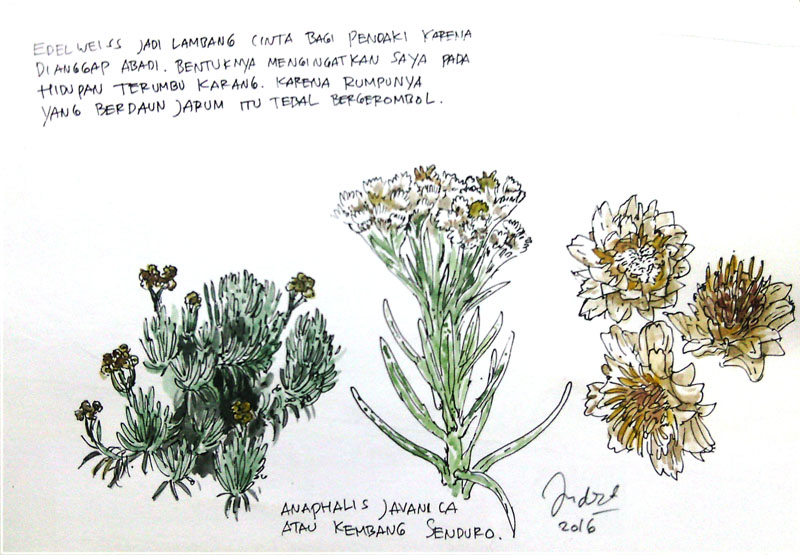 EDELWEISS JADI LAMBANG CINTA BAGI PENDAKI KARENA
DIANGGAP ABADI. BENTUKNYA MENGINGATKAN SAYA PADA
HIDUPAN TERUMBU KARANG. KARENA RUMPUNYA
YANG BERDAUN JARUM ITU TEBAL BERGEROMBOL.
ANAPHALIS JAVANICA
ATAU KEMBANG SENDURO.
2016